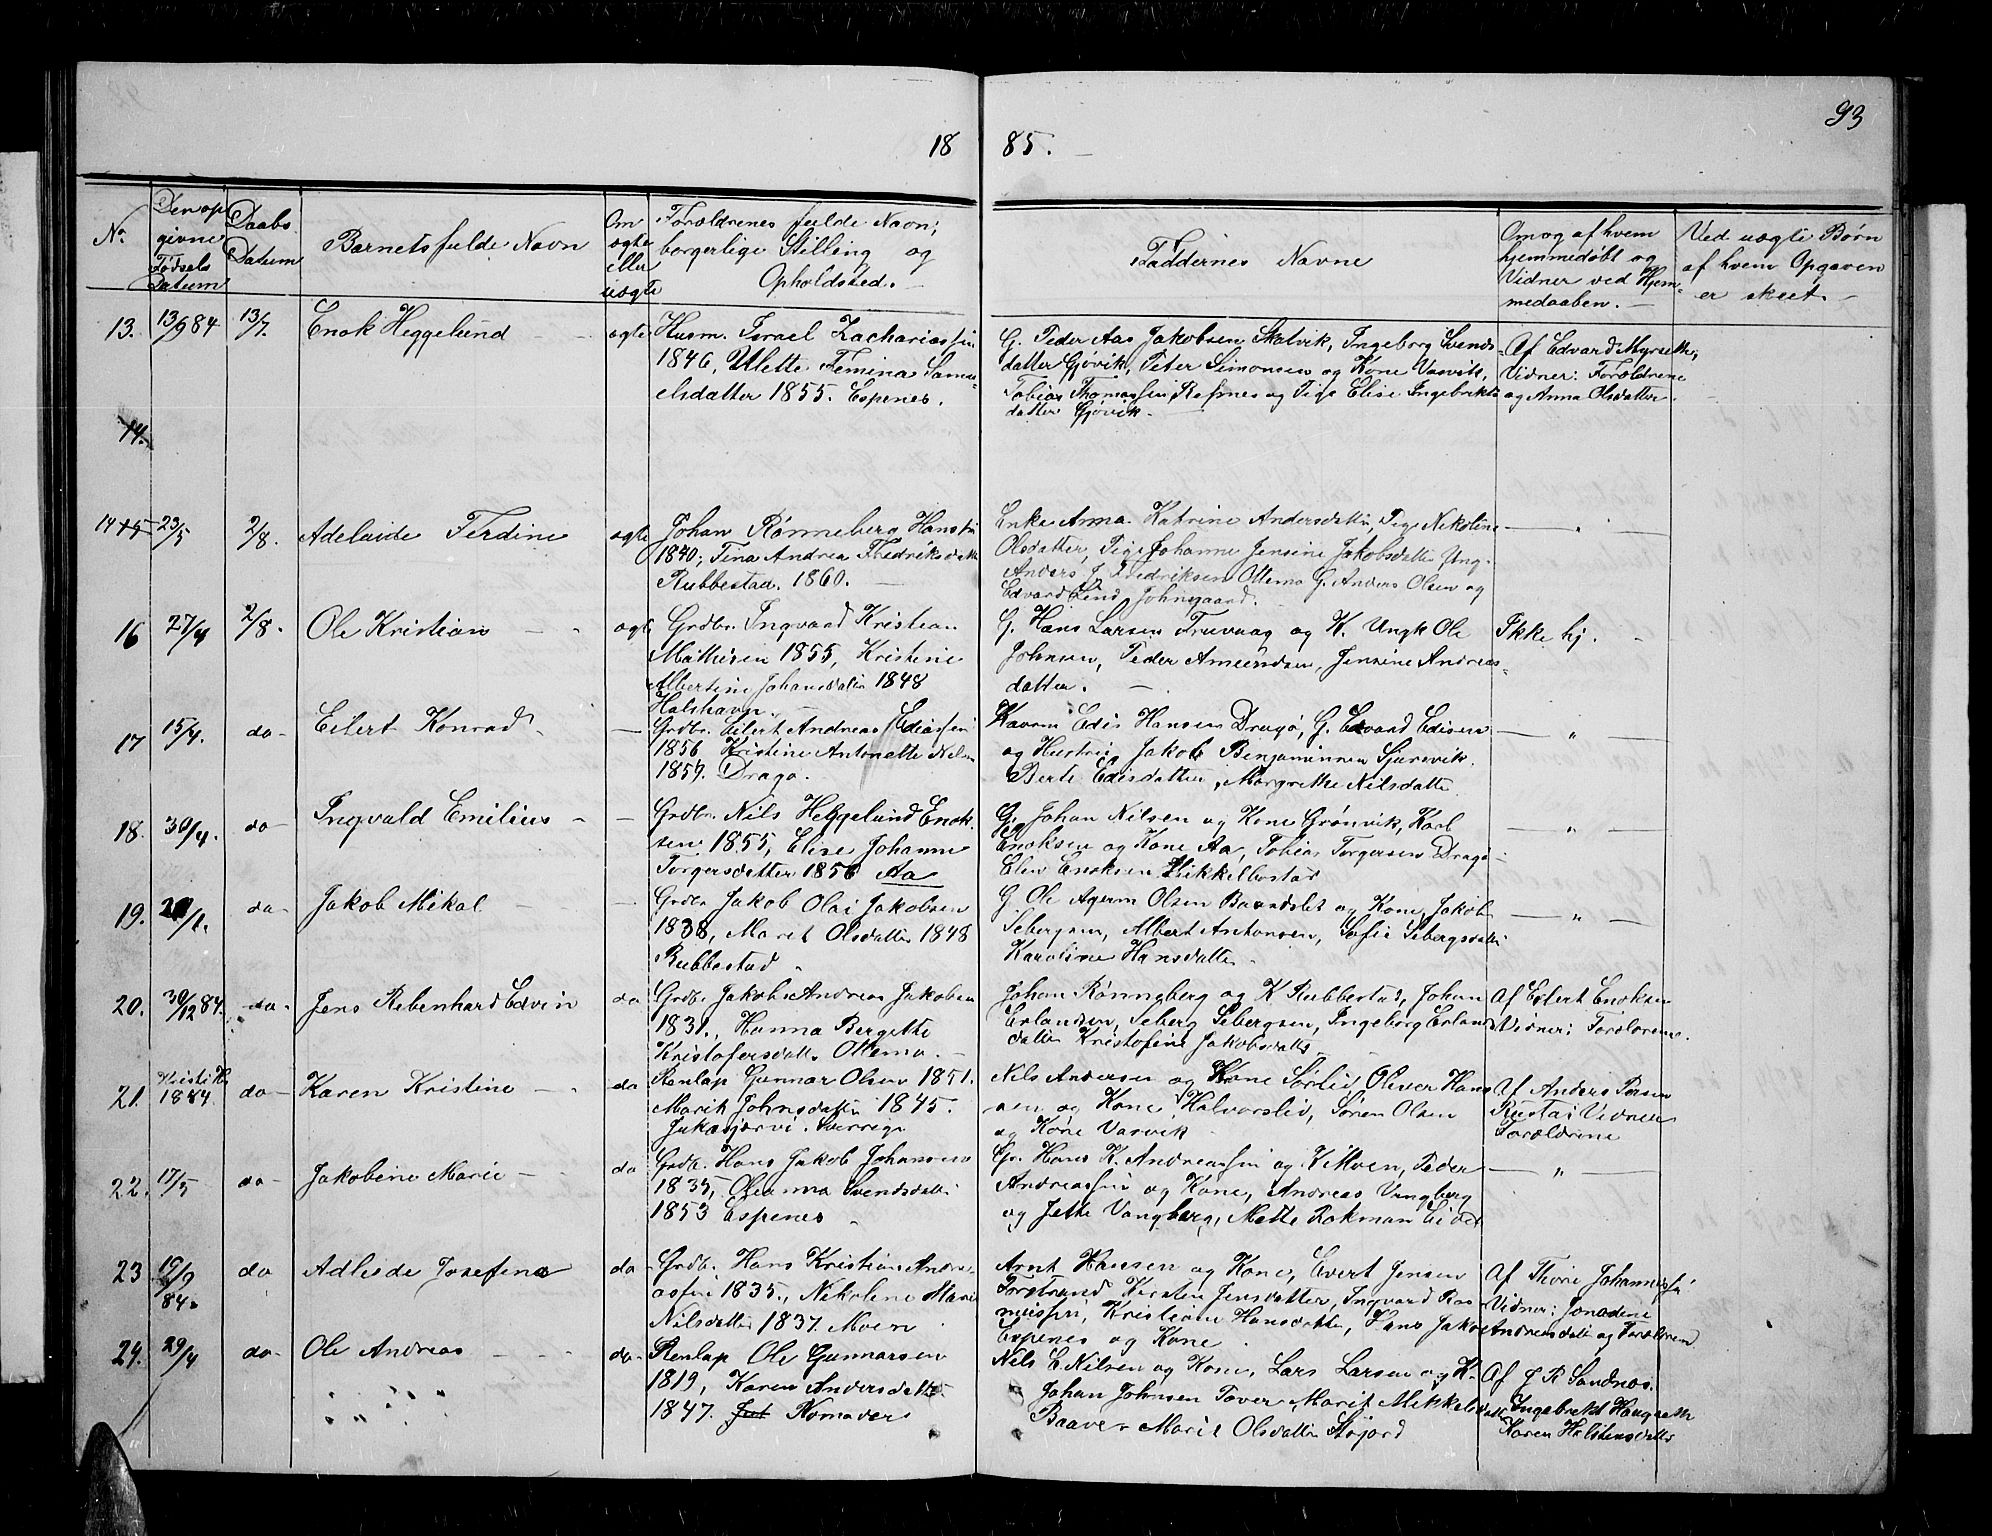 93
18 85. –
No.
Den op
givne
Fødsels
Datum
Daabs
Datum
Barnets fulde Navn
Om
ægte
eller
uægte
Forældrenes fulde Navn,
borgerlige Stilling og
Opholdsted. –
Faddernes Navne
Om og af hvem
hjemmedøbt og
Vidner ved Hjem-
medaaben. –
Ved uægte Børn
af hvem Opgaven
er skeet. –
13. 13/9 84 13/7. Enok Heggelund ægte
Husm. Israel Zachariassen
1846, Ulette Femina Samu-
elsdatter 1855. Espenes.
G. Peder Aas Jakobsen Skatvik, Ingeborg Svends-
datter Gjøvik, Peter Simonsen og Kone Vasvik,
Tobias Thomassen Refsnes og Pige Elise Ingebrikts
datter Gjøvik.
Af Edvard Myrseth,
Vidner: Forældrene
og Anna Olsdatter
14.
14 15 23/5 2/8. Adelaide Ferdine ægte
Johan Rønneberg Hanssen
1840, Tina Andrea Fredriksdatter
Rubbestad. 1860. –
Enke Anna Katrine Andersdatter, Pige Nikoline
Olsdatter, Pige Johanne Jensine Jakobsdatter Ung.
Anders J. Fredriksen Ottema G. Anders Olsen og
Edvard Lind Johngaard.
– " –
16 27/4 2/8. Ole Kristian ægte
Grdbr. Ingvard Kristian
Mathisen 1855, Kristine
Albertine Johansdatter 1848
Halshavn.
G. Hans Larsen Truvaag og K. Ungk Ole
Johnsen, Peder Amundsen, Jensine Andreas-
datter. –
Ikke hj.
17 15/4. do Eilert Konrad –
Grdbr. Eilert Andreas Ediassen
1856 Kristine Antonette Nilsen
1859. Dragø.
Kavam Edis Hansen Dragø, G. Edvard Edisen
og Hustru, Jakob Benjaminsen Gjøvik.
Berte Edisdatter, Margrethe Nilsdatter
– " –
18. 30/4. do Ingvald Emilius –
Grdbr. Nils Heggelund Enok-
sen 1855, Elise Johanne
Torgersdatter 1856 Aa
G. Johan Nilsen og Kone Grønvik, Karl
Enoksen og Kone Aa, Tobias Torgersen Dragø
Elen Enoksen Mikkelbostad
– " –
19. 21/1. do Jakob Mikal –
Grdbr Jakob Olai Jakobsen
1838, Maret Olsdatter 1848
Rubbestad
G Ole Agerm Olsen Baardslet og Kone, Jakob
Sebergsen, Albert Antonsen, Sofie Sebergsdatter
Karoline Hansdatter
– " –
20. 30/12 84. do Jens Rebenhard Edvin do
Grdbr Jakob Andreas Jakobsen
1831, Hanna Bergette
Kristofersdatter Ottema. –
Johan Rønneberg og K Rubbestad, Johan
Erlandsen, Seberg Sebergsen, Ingeborg Erlands
datter Kristofine Jakobsdatter
Af Eilert Enoksen
Vidner: Forældrene.
21. Kristi H.
1884 do Karen Kristine – do
Renlap Gunnar Olsen 1851.
Marit Johnsdatter 1845.
Jukasjærvi. Sverrige
Nils Andersen og Kone Sørli, Oliver Hans
sen og Kone Halvorsliv, Søren Olsen
og Kone Vasvik
Af Anders Persen
Rustad Vidner
Forældrene
22. 17/5 do Jakobine Marie – do
Grdb. Hans Jakob Johansen
1835, Oleanna Svendsdatter
1853 Espenes
Gr. Hans K. Andreassen og K Moen, Peder
Andreassen og Kone, Andreas Vangberg
og Jette Vangberg, Mette Rokman Eidet
– " –
23 19/9
84. do Adleide Josefina do
Grdb. Hans Kristian Andre-
assen 1835, Nikoline Marie
Nilsdatter 1837. Moen
Arnt Hansen og Kone, Evert Jensen
Forstrand, Kirsten Jensdatter, Ingvard Ras
mussen, Kristian Hansdatter, Hans Jakob
Espenes og Kone
Af Thore Johannessen
Vidner: Jonadene
Andreasdatter og Forældrene
24. 29/4 do Ole Andreas – do
Renlap Ole Gunnarsen
1819, Karen Andersdatter
1847. Nomader
Nils E. Nilsen og Kone, Lars Larsen og K.
Johan Johnsen Tover Marit Mikkelsdatter
Baave. Marit Olsdatter Støjord
Af J R Sandnes.
Ingebrekt Haugseth
Karen Halstensdatter